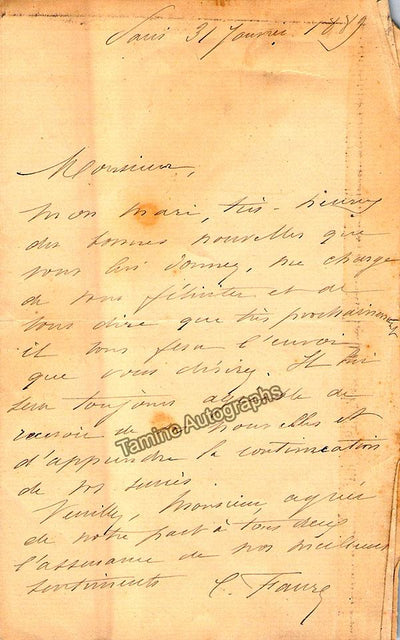 Paris 31 Janvier 1889
Monsieur,
Mon mari, très-heureux
des bonnes nouvelles que
vous lui donnez, me charge
de vous féliciter et de
vous dire que très prochainement
il vous fera l'envoi
que vous désirez. Il lui
sera toujours agréable de
recevoir de vos nouvelles et
d'apprendre la continuation
de vos succès.
Veuillez, Monsieur, agréer
de notre part à tous deux
l'assurance de nos meilleurs
sentiments C. Faure
Tamino Autographs